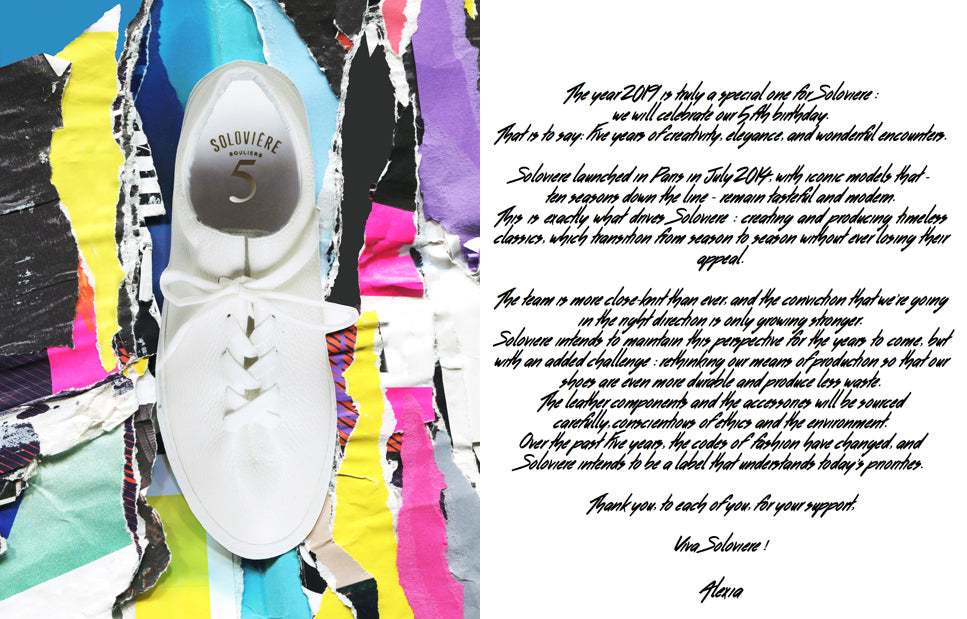 SOLOVIÈRE
SOULIERS
5
The year 2019 is truly a special one for Soloviere :
we will celebrate our 5th birthday.
That is to say: five years of creativity, elegance, and wonderful encounters.
Soloviere launched in Paris in July 2014, with iconic models that -
ten seasons down the line - remain tasteful and modern.
This is exactly what drives Soloviere : creating and producing timeless
classics, which transition from season to season without ever losing their
appeal.
The team is more close-knit than ever, and the conviction that we're going
in the right direction is only growing stronger.
Soloviere intends to maintain this perspective for the years to come, but
with an added challenge : rethinking our means of production so that our
shoes are even more durable and produce less waste.
The leather components and the accessories will be sourced
carefully, conscientious of ethics and the environment.
Over the past five years, the codes of fashion have changed, and
Soloviere intends to be a label that understands today's priorities.
Thank you, to each of you, for your support.
Viva Soloviere !
Alexia